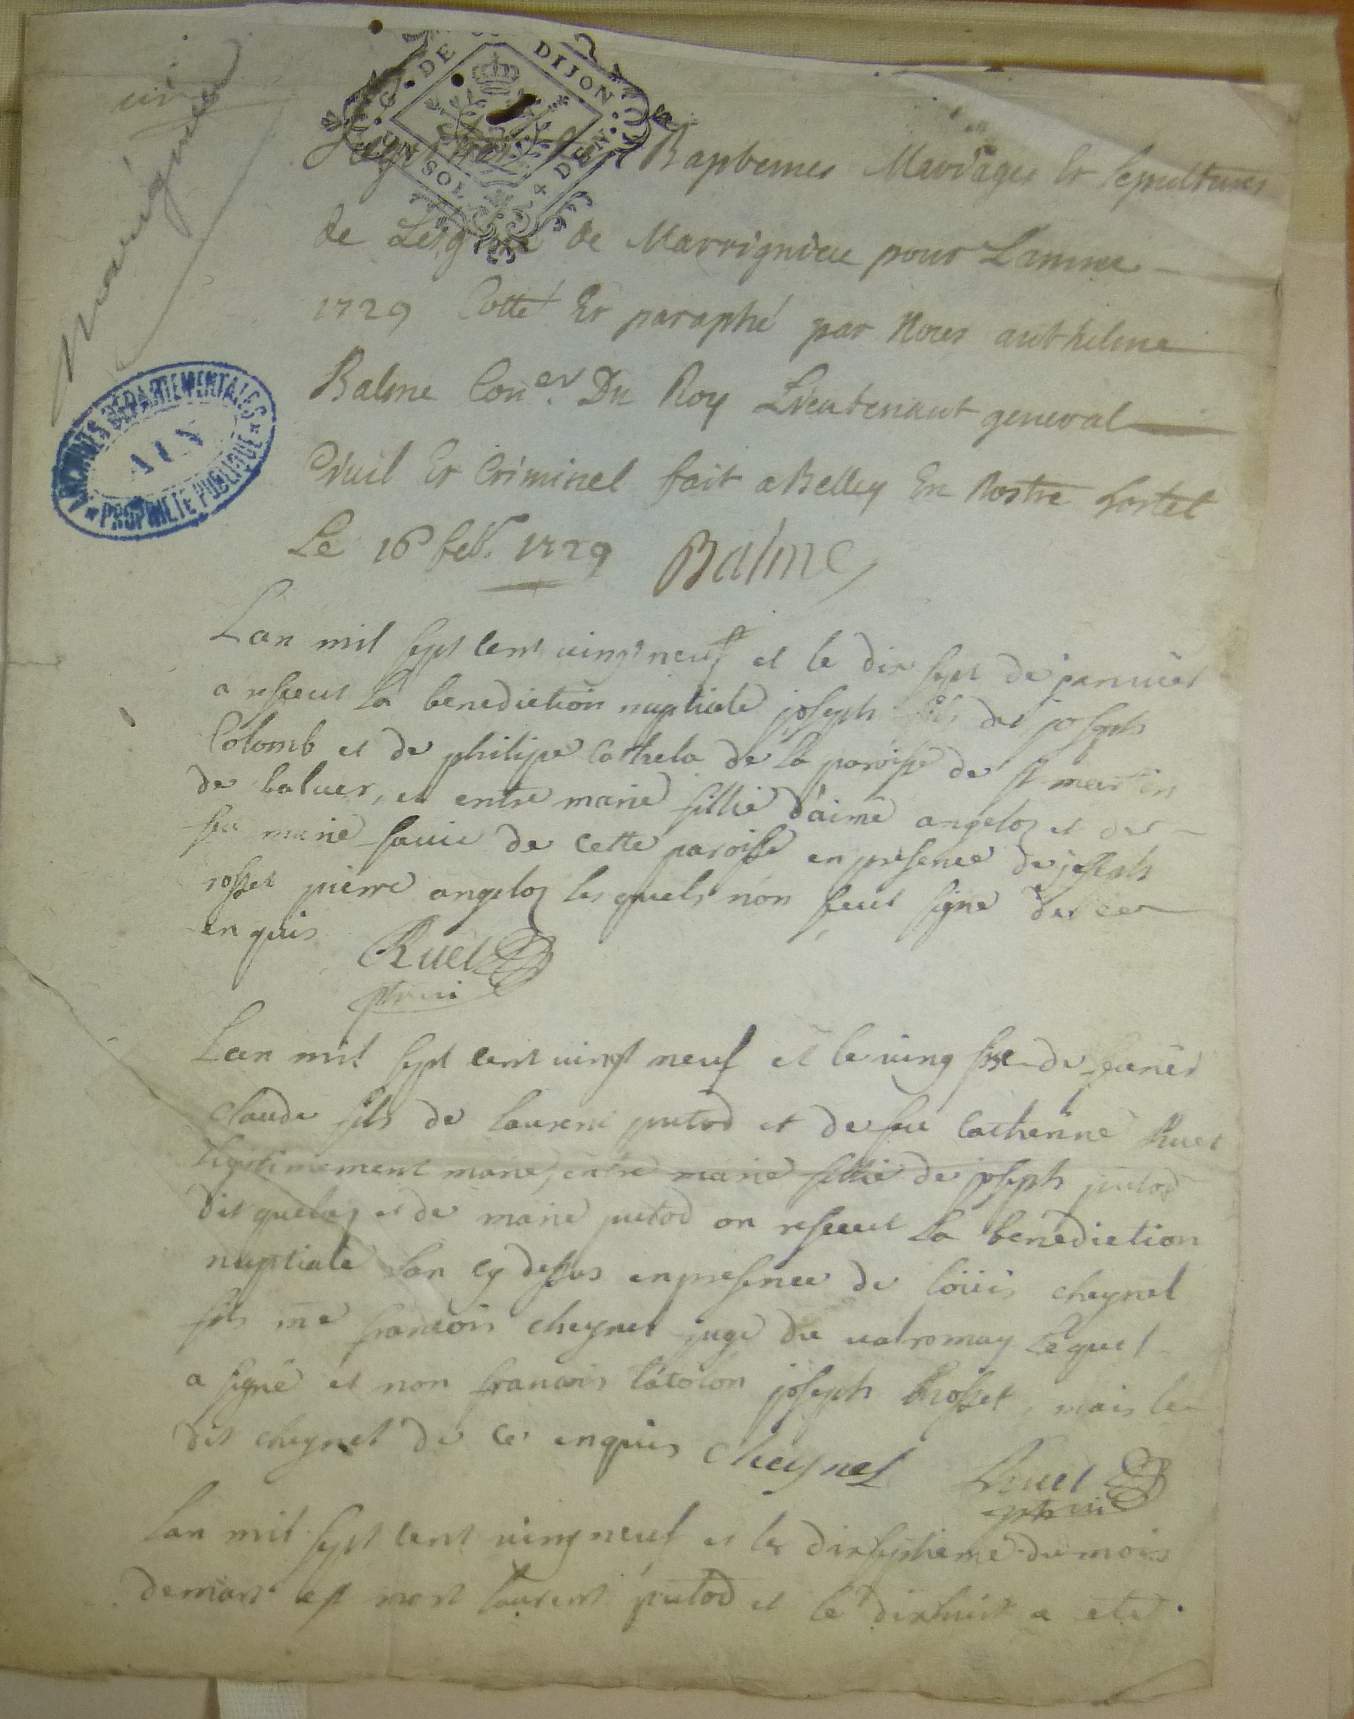 un
Marignieu
G. DE DIJON
UN SOL 4 DEN.
Baptemes Mariages Et Sepultures
de Leglise de Marrignieu pour Lannee
1729 Cotté Er paraphé par Nous anthelme
Balme Con.er Du Roy Lieutenant general
Civil Er Criminel fait a Belley En Nostre hostel
Le 16 feb. 1729 Balme
ARCHIVES DÉPARTEMENTALES
AIN
PROPRIÉTÉ PUBLIQUE
Lan mil sept cent vingt neuf et le dix sept de janvier
a resseut la benediction nuptiale joseph fils de joseph
Colomb et de philipe Cathela de la paroisse de st martin
de baluer, et entre marie fillie d'aimé angeloz et de
feu marie de cette paroisse en presence de joseph
rosset pierre angeloz lesquels non seut signe de ce
enquis Ruet
Lan mil sept cent vingt neuf et le ving de
claude fils de laurent putod et de feu Catherine Ruet
legitimement marie, entre marie fillie de joseph putod
dit et de marie putod on resseut la benediction
nuptiale lan cy dessus en presence de loüis cheynel
fils me francois cheynel juge du valromay lequel
a signé et non francois joseph rosset, mais le
dit cheynel de ce enquis Cheynel Ruet
Lan mil sept cent ving neuf et le dixseptieme du mois
de mars est mort laurent putod et le dixhuit a eté